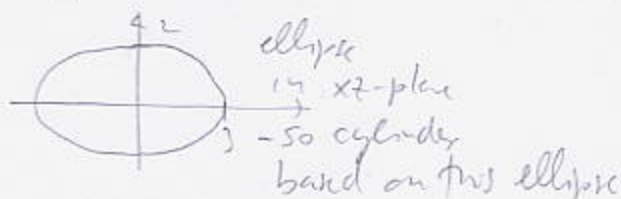 2
ellipse
in xz-plane
3 - so cylinder
based on this ellipse